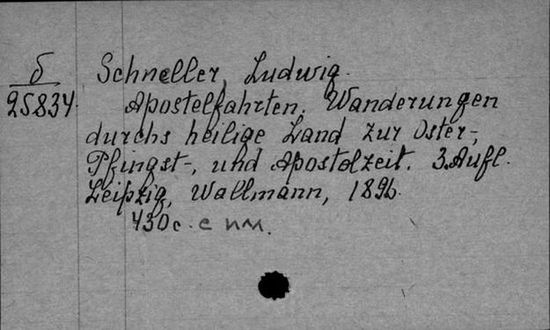 δ
25834.
Schneller, Ludwig.
Apostelfahrten. Wanderungen
durchs heilige Land zur Oster-,
Pfingst-, und Apostolzeit. 3. Aufl.
Leipzig, Wallmann, 1896.
430 с. с илл.